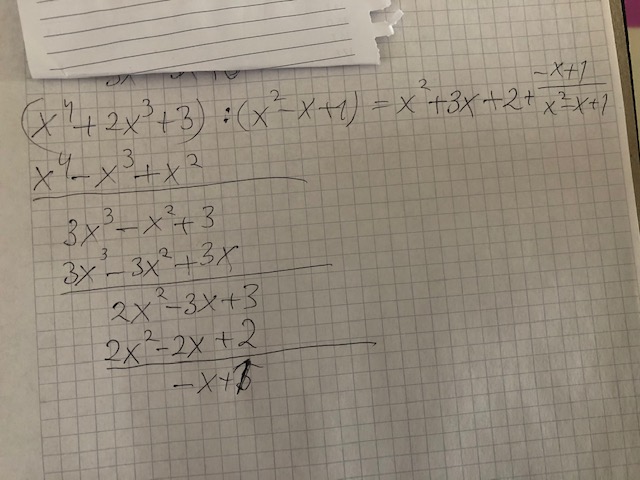 (x⁴ + 2x³ + 3) : (x² - x + 1) = x² + 3x + 2 + (-x+1)/(x²-x+1)
x⁴ - x³ + x²
3x³ - x² + 3
3x³ - 3x² + 3x
2x² - 3x + 3
2x² - 2x + 2
-x + 1